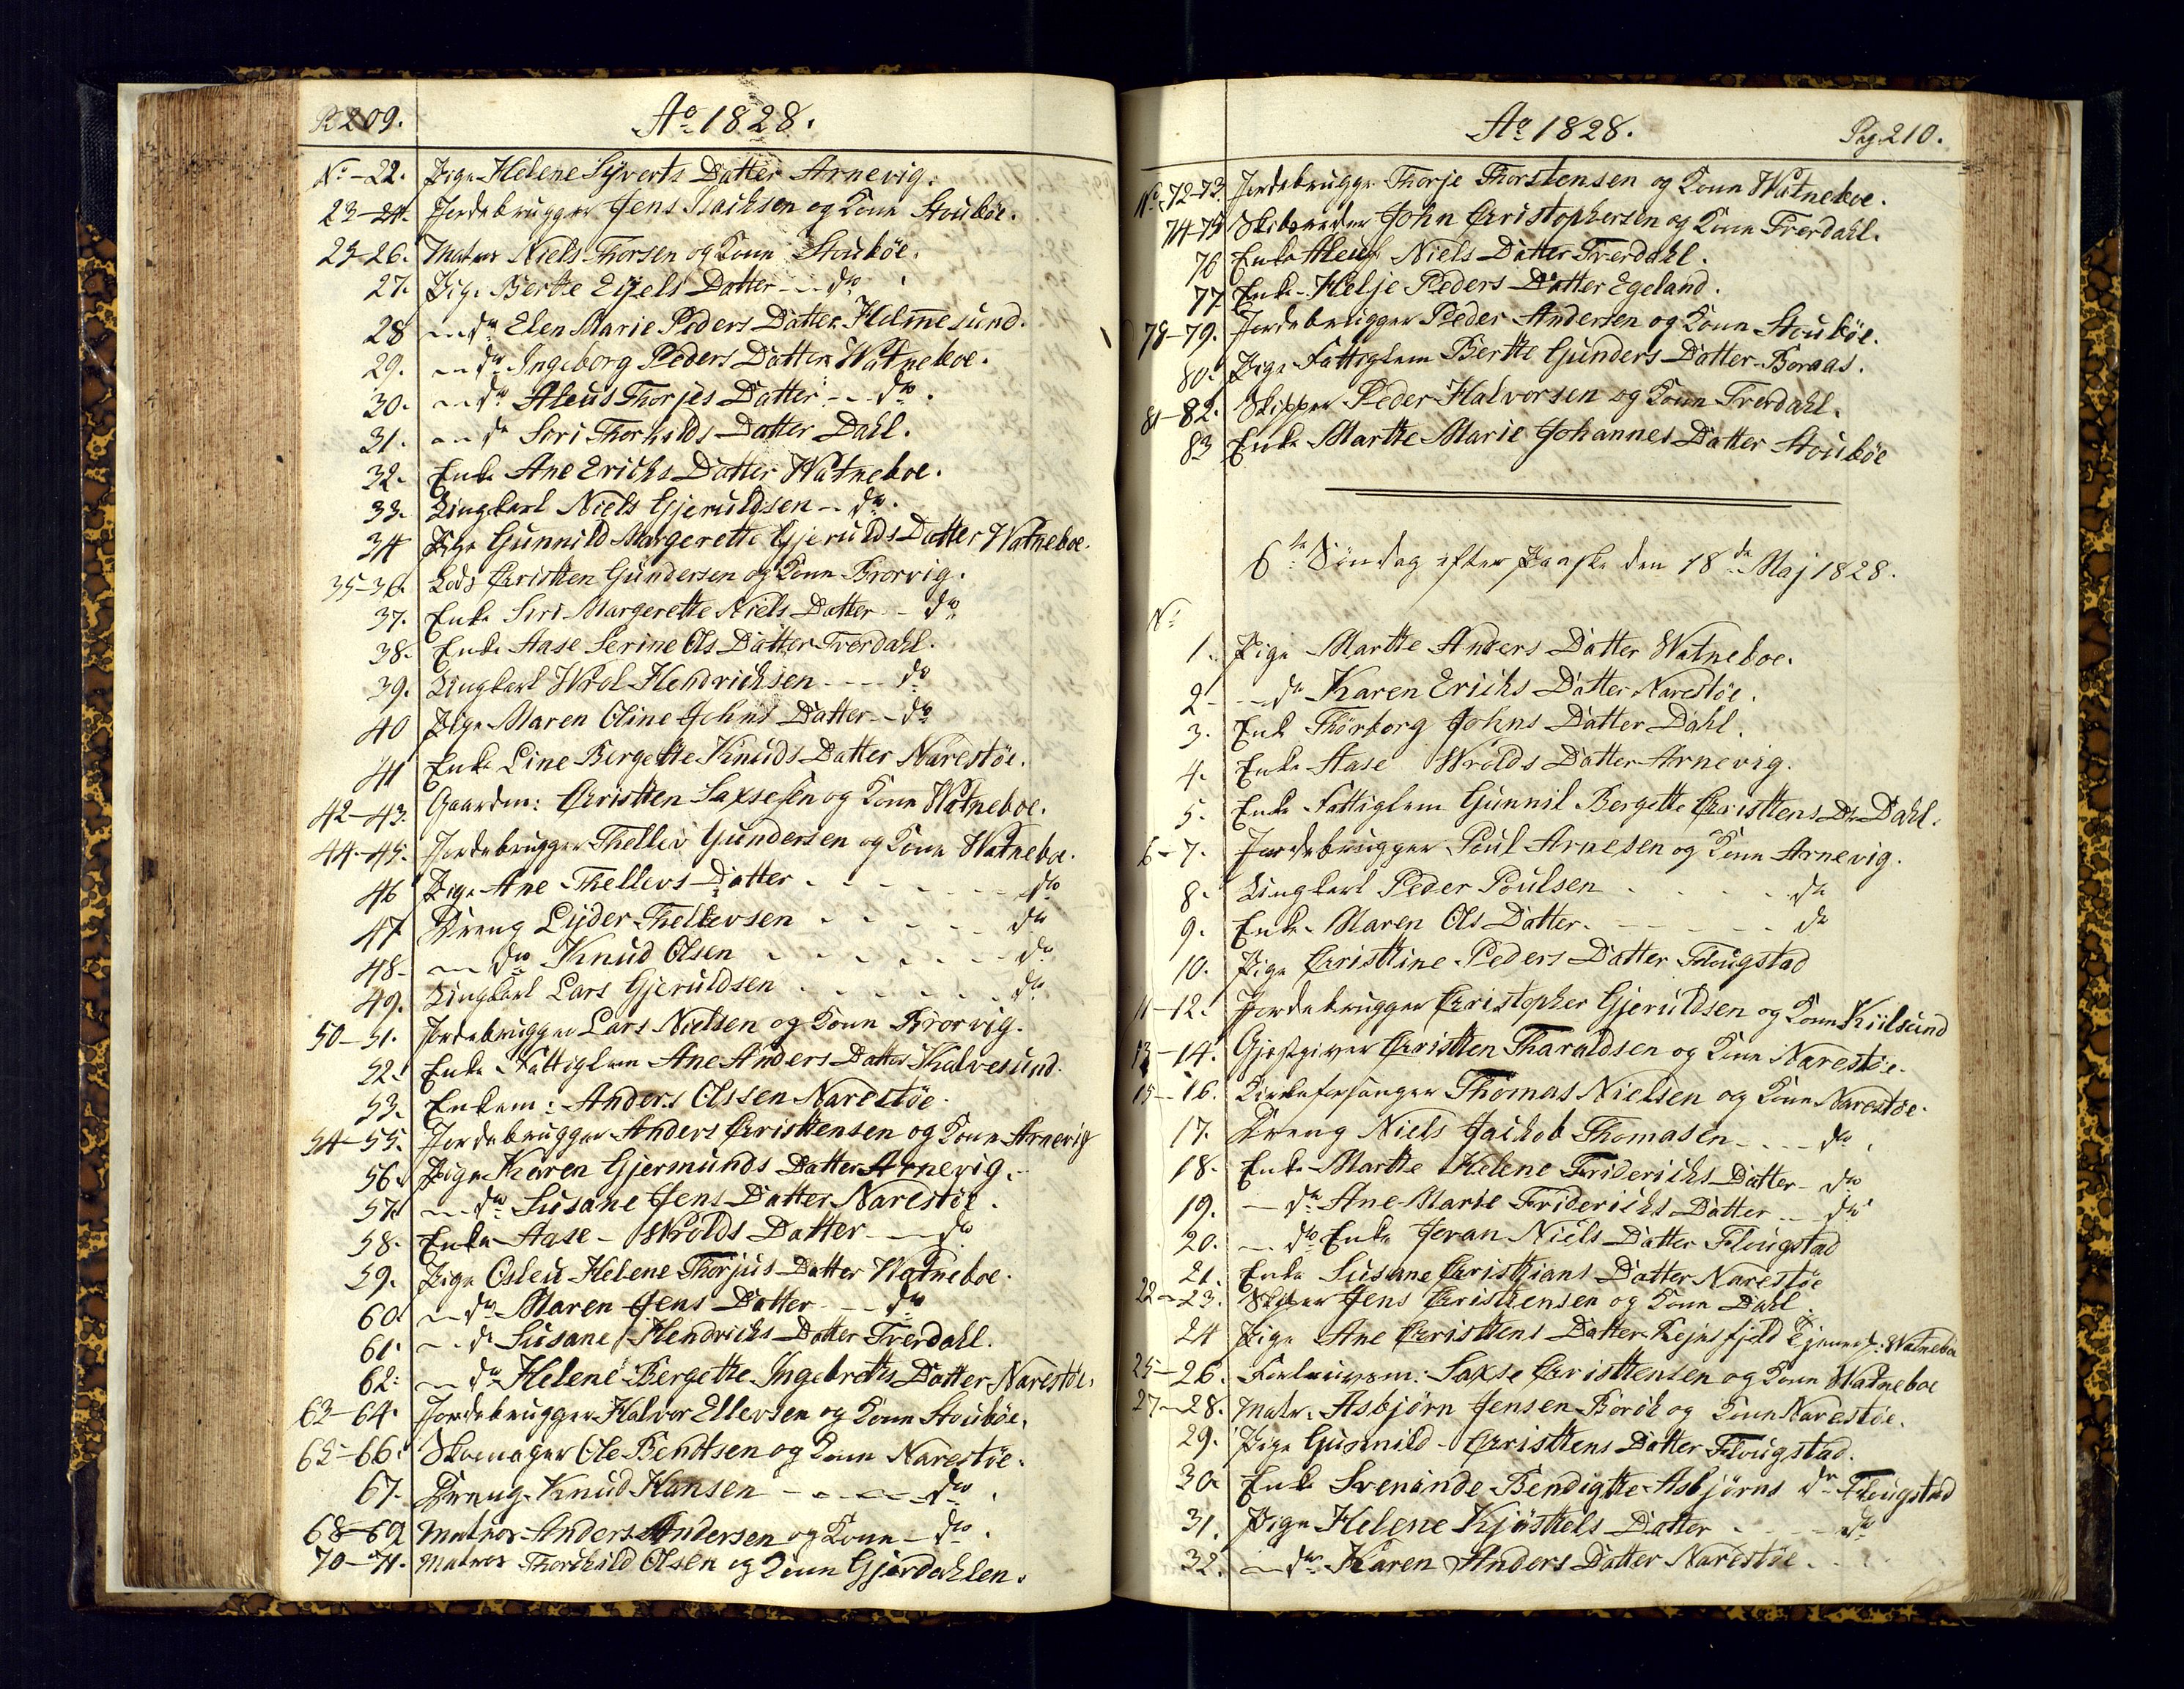 P. 209.
Ao 1828.
No - 22. Pige Helene Syverts Datter Arnevig.
23-24. Jordebrugger Jens Isachsen og Kone Stoubøe.
25-26. Matros Niels Thorsen og Kone Stoubøe.
27. Pige Berthe Eyels Datter - - do
28 - - do Elen Marie Peders Datter Helmesund.
29. - - do Ingeborg Peders Datter Watneboe.
30. - - do Aleus Thorjes Datter - - do.
31. - - do Siri Thorkilds Datter Dahl.
32. Enke Ane Erichs Datter Watneboe.
33. Ungkarl Niels Gjeruldsen - - do.
34 Pige Gunnild Margerette Gjerulds Datter Watneboe.
35-36. Lods Christen Gundersen og Kone Brorvig.
37. Enke Siri Margerette Niels Datter - do
38. Enke Aase Serine Ols Datter Tverdahl.
39. Ungkarl Wrol Hendrichsen - - - do
40 Pige Maren Oline Johns Datter - - do
41 Enke Line Bergette Knuds Datter Narestöe.
42-43. Gaardm: Christen Saxsesen og Kone Watneboe.
44-45. Jordebrugger Thellev Gundersen og Kone Watneboe.
46 Pige Ane Thellevs Datter - - - - - do
47 Dreng Lyder Thellevsen - - - - - do
48. - - do Knud Olsen - - - - - do
49. Ungkarl Lars Gjeruldsen - - - - - do
50-51. Jordebrugger Lars Nielsen og Kone Brorvig.
52. Enke Fattiglem Ane Anders Datter Kalvesund.
53. Enkem: Anders Olssen Narestöe.
54-55. Jordebrugger Anders Christensen og Kone Arnevig
56. Pige Karen Gjermunds Datter Arnevig.
57. - - do Susane Jens Datter Narestöe.
58. Enke Aase Wrolds Datter - - do
59. Pige Osleu Helene Thorjus Datter Watneboe.
60. - - do Maren Jens Datter - - do
61. - - do Susane Hendrichs Datter Tverdahl.
62. - do Helene Bergethe Ingebreths Datter Narestöe.
63-64. Jordebrugger Halvor Ellevsen og Kone Stoubøe.
65-66. Skomager Ole Bendtsen og Kone Narestöe.
67. Dreng Knud Hansen - - - - do.
68-69 Matros Anders Andersen og Kone - do.
70-71. Matros Thorkild Olsen og Kone Gjerdahlen.
Ao 1828.
Pag. 210.
No 72-73. Jordebrugger Thorje Thorstensen og Kone Watneboe.
74-75 John Christophersen og Kone Tverdahl.
76 Enke Aleus Niels Datter Tverdahl.
77 Enke Helje Peders Datter Egeland.
78-79. Jordebrugger Peder Andersen og Kone Stoubøe.
80. Pige Fattiglem Berthe Gunders Datter Boraas.
81-82. Skipper Peder Halvorsen og Kone Tverdahl.
83 Enke Marthe Marie Johannes Datter Stoubøe
6te Söndag efter Paaske den 18de Maj 1828.
No
1. Pige Marthe Anders Datter Watneboe.
2 - - do Karen Erichs Datter Narestöe.
3. Enke Thorborg Johns Datter Dahl.
4. Enke Aase Wrolds Datter Arnevig.
5. Enke Fattiglem Gunnil Bergette Christens Dr Dahl.
6-7. Jordebrugger Poul Arnesen og Kone Arnevig.
8. Ungkarl Peder Poulsen - - - - do
9. Enke Maren Ols Datter - - - - do
10. Pige Christine Peders Datter Flougstad
11-12. Jordebrugger Christopher Gjeruldsen og Kone Kiilsund
13-14. Gjæstgiver Christen Tharaldsen og Kone Narestöe.
15-16. Kirkesanger Thomas Nielsen og Kone Narestöe.
17. Dreng Niels Jachob Thomasen - - - do.
18. Enke Marthe Helene Friderichs Datter - do
19. - do Ane Marie Friderichs Datter - - do
20. - - do Enke Joran Niels Datter Flougstad
21. Enke Susane Christians Datter Narestöe
22-23. Skipper Jens Christensen og Kone Dahl.
24 Pige Ane Christens Datter Rejersfjeld Watneboe
25-26. Saxse Christensen og Kone Watneboe
27-28. Matr. Asbjørn Jensen Borik og Kone Narestöe.
29. Pige Gunnild Christens Datter Flougstad.
30. Enke Svenunde Bendigtte Asbjörns dr Flougstad
31. Pige Helene Kjösttels Datter - - - do
32. - - do Karen Anders Datter Narestöe.